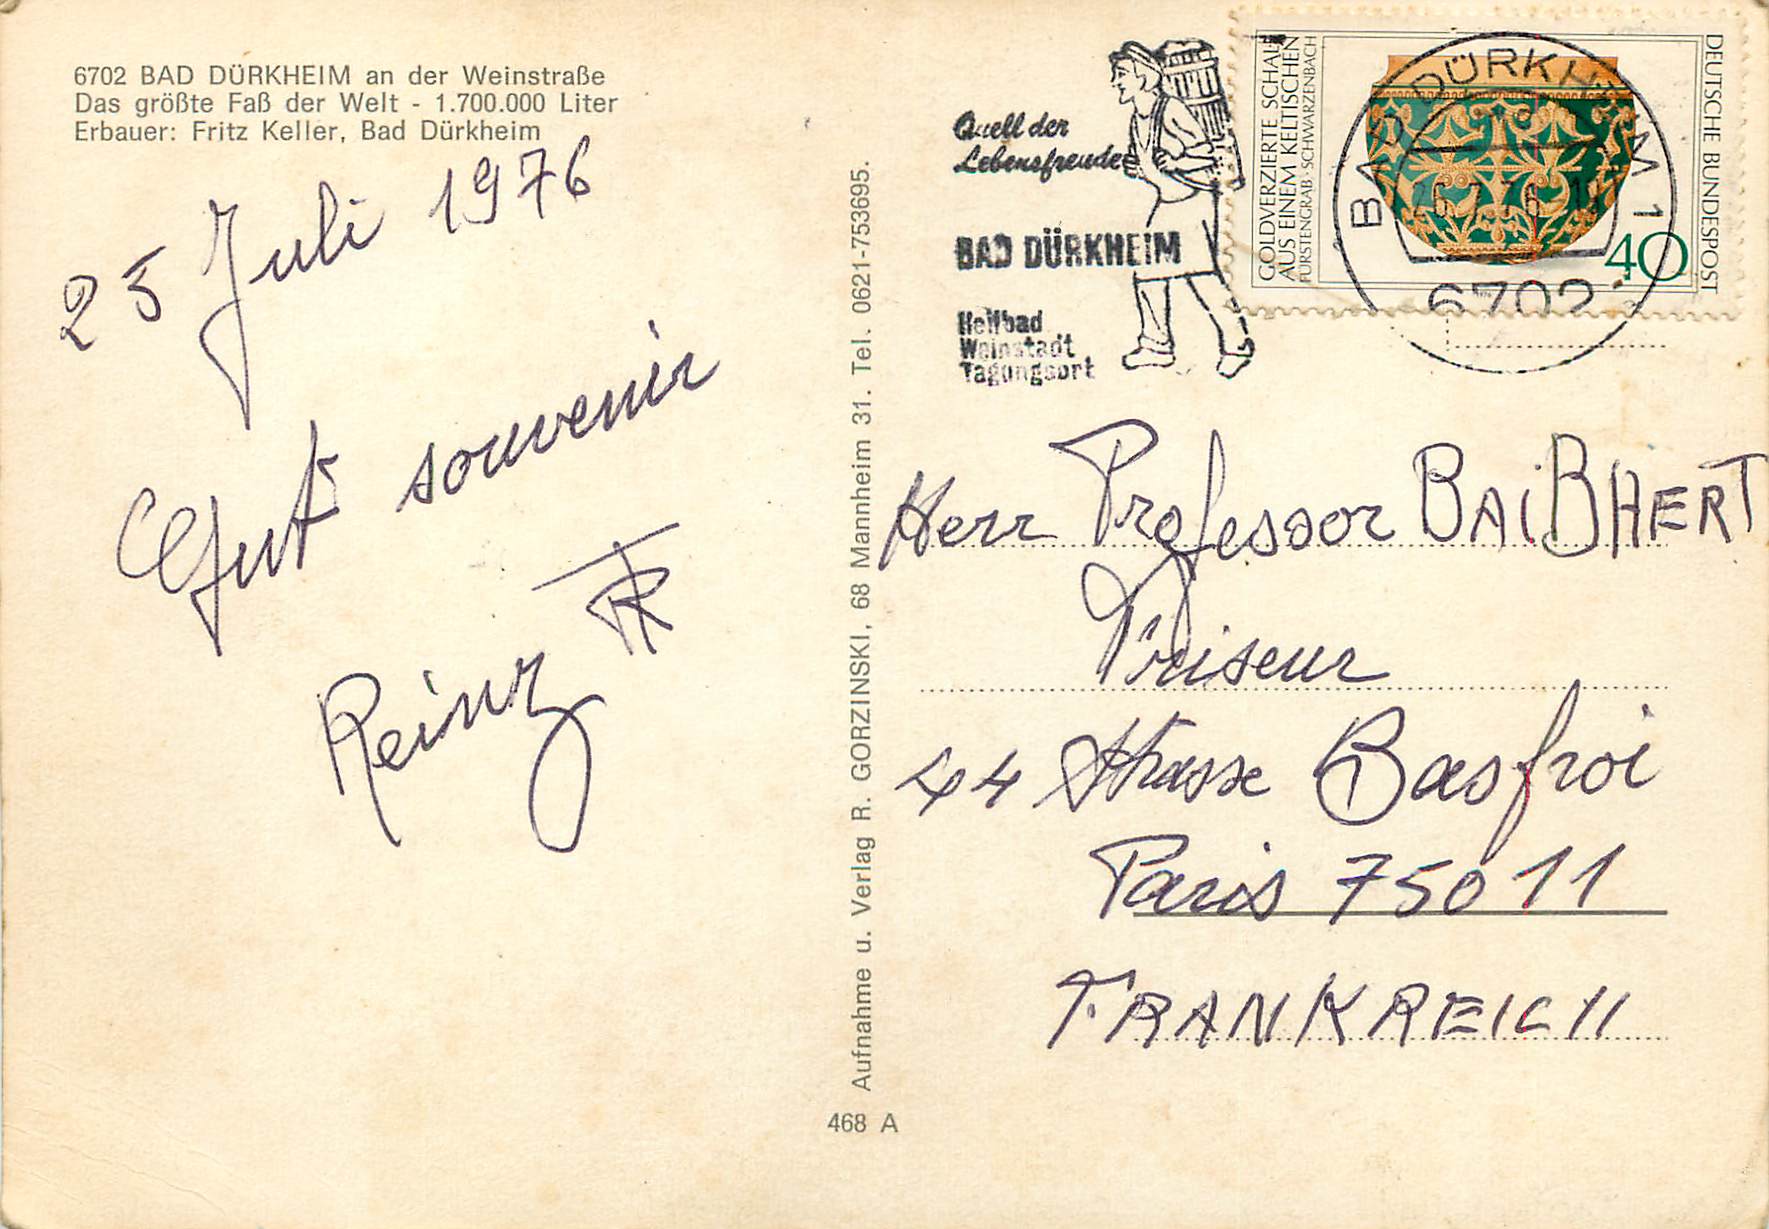 6702 BAD DÜRKHEIM an der Weinstraße
Das größte Faß der Welt - 1.700.000 Liter
Erbauer: Fritz Keller, Bad Dürkheim
25 Juli 1976
Gut souvenir
Reinz
Aufnahme u. Verlag R. GORZINSKI, 68 Mannheim 31. Tel. 0621-753695.
468 A
Quell der
Lebensfreude
BAD DÜRKHEIM
Heilbad
Weinstadt
Tagungsort
GOLDVERZIERTE SCHALE
AUS EINEM KELTISCHEN
FÜRSTENGRAB · SCHWARZENBACH
DEUTSCHE BUNDESPOST
40
BAD DÜRKHEIM 1
26.7.76
6702
Herr Professor BAiBHERT
Friseur
44 Strasse Basfroi
Paris 75011
FRANKREICH